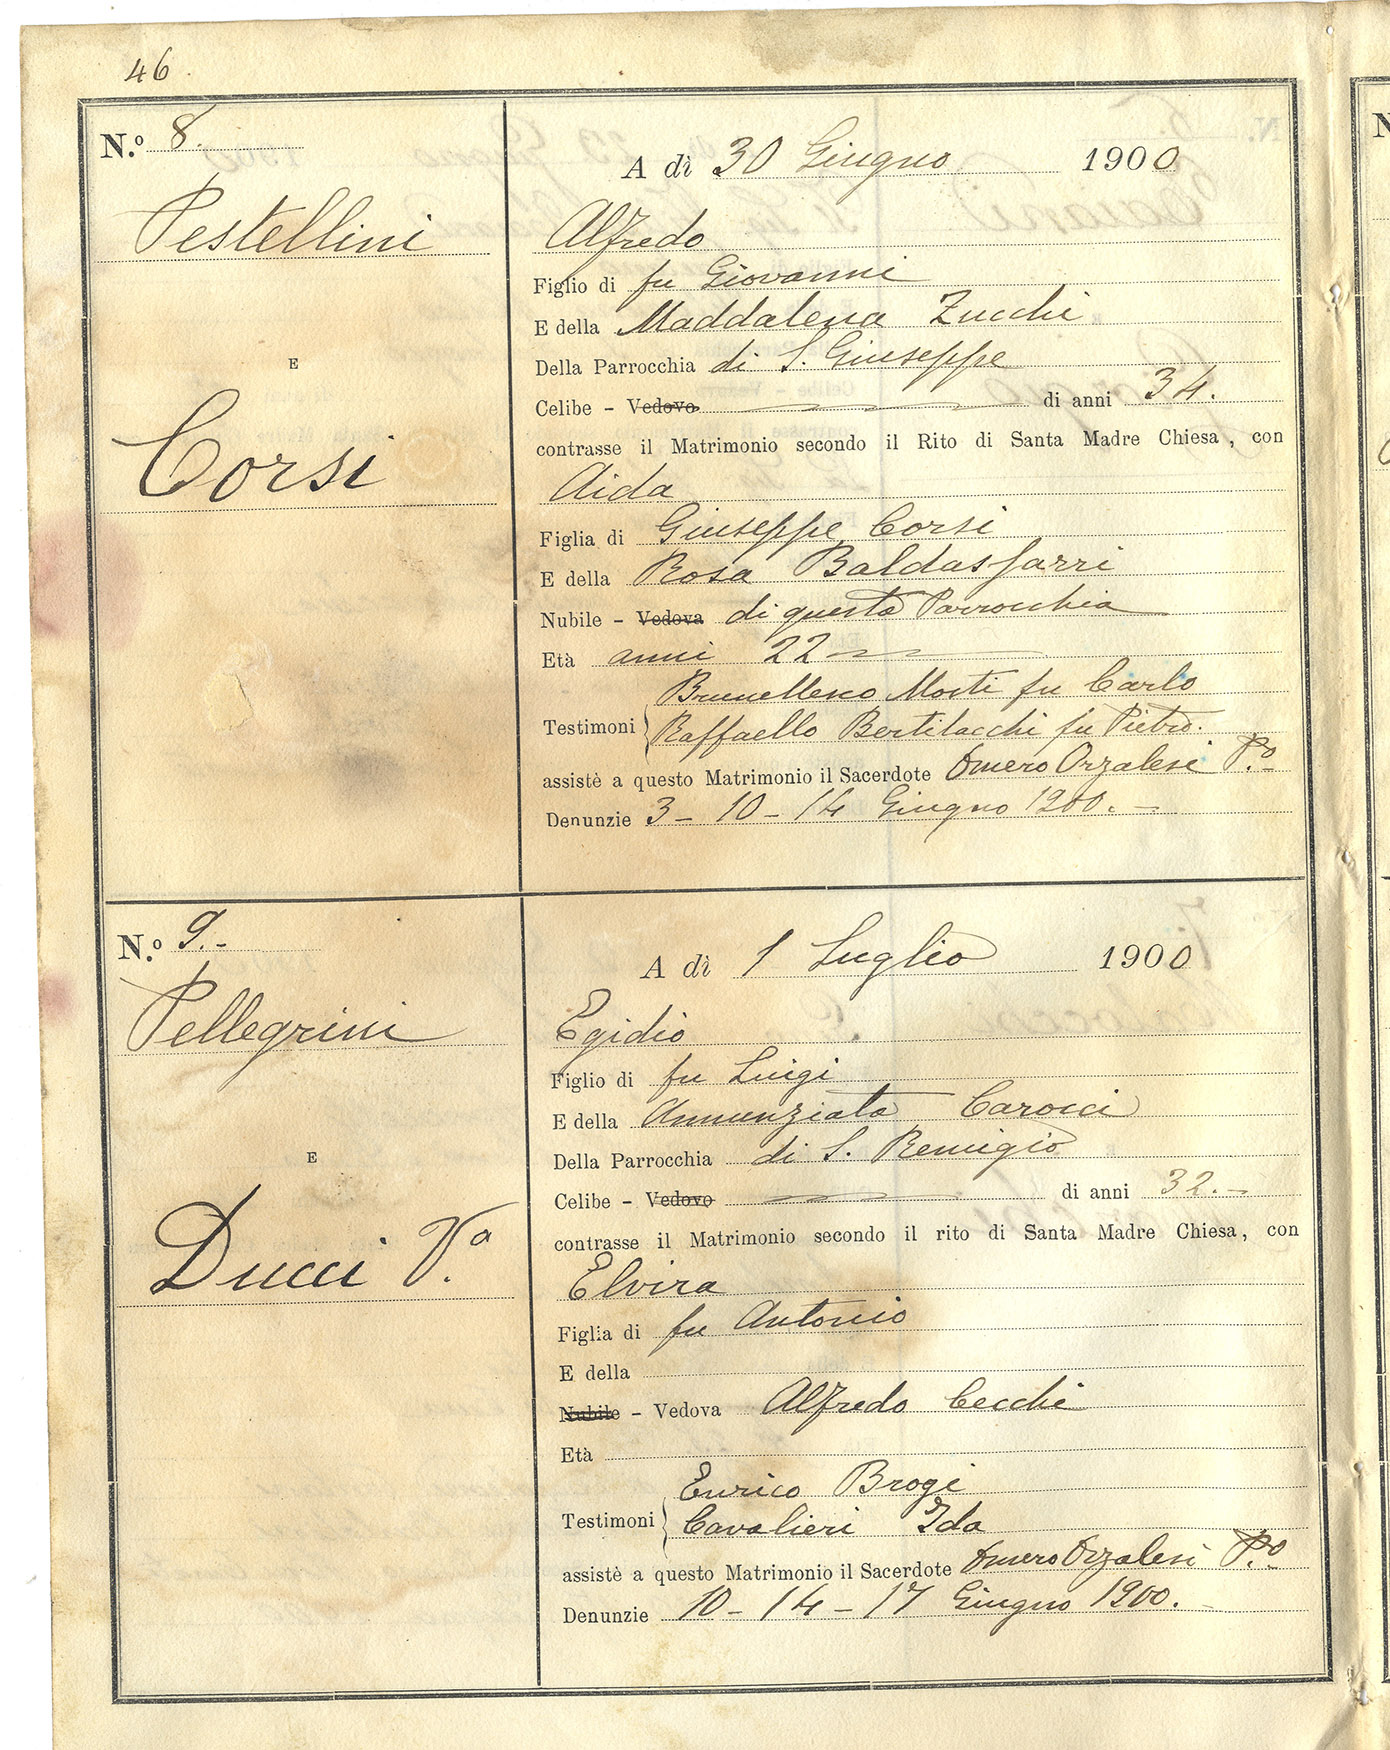 46
N.º 8.
Pestellini
E
Corsi
A dì 30 Giugno 1900
Alfredo
Figlio di fu Giovanni
E della Maddalena Zucchi
Della Parrocchia di S. Giuseppe
Celibe - Vedovo di anni 34.
contrasse il Matrimonio secondo il Rito di Santa Madre Chiesa, con
Aida
Figlia di Giuseppe Corsi
E della Rosa Baldassarri
Nubile - Vedova di questa Parrocchia
Età anni 22
Brunellesco Morti fu Carlo
Testimoni Raffaello Bertilacchi fu Pietro.
assistè a questo Matrimonio il Sacerdote Omero Orzalesi P.º
Denunzie 3 - 10 - 14 Giugno 1900. -
N.º 9. -
Pellegrini
E
Ducci V.ª
A dì 1 Luglio 1900
Egidio
Figlio di fu Luigi
E della Annunziata Carocci
Della Parrocchia di S. Remigio
Celibe - Vedovo di anni 32. -
contrasse il Matrimonio secondo il rito di Santa Madre Chiesa, con
Elvira
Figlia di fu Antonio
E della
Nubile - Vedova Alfredo Cecchi
Età
Enrico Brogi
Testimoni Cavalieri Ida
assistè a questo Matrimonio il Sacerdote Omero Orzalesi P.º
Denunzie 10 - 14 - 17 Giugno 1900. -
N